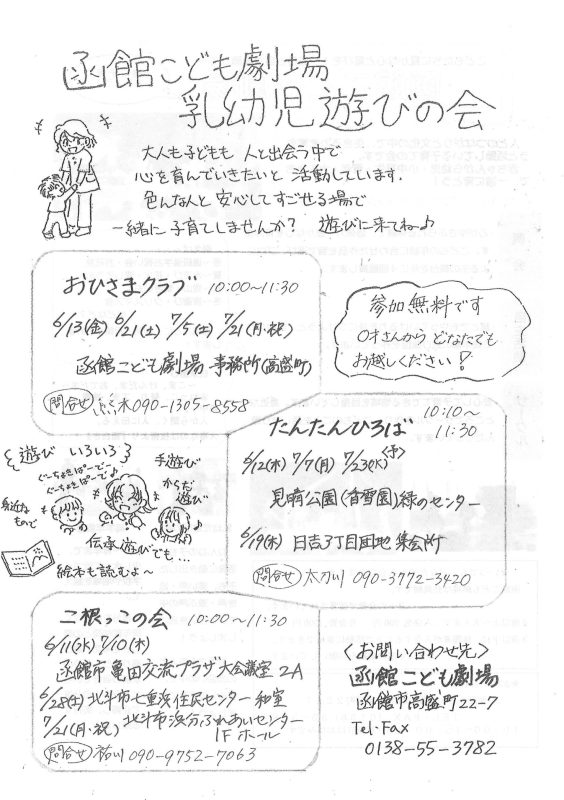 函館こども劇場
乳幼児遊びの会
大人も子どもも 人と出会う中で
心を育んでいきたいと 活動しています.
色んな人と 安心してすごせる場で
一緒に 子育てしませんか? 遊びに来てね♪
おひさまクラブ 10:00〜11:30
6/13(金) 6/21(土) 7/5(土) 7/21(月・祝)
函館こども劇場 事務所(高盛町)
問合せ 木090-1305-8558
参加無料です
0才さんから どなたでも
お越しください!
たんたんひろば 10:10〜
11:30
6/12(木) 7/7(月) 7/23(水)
見晴公園(香雪園)緑のセンター
6/19(木) 日吉3丁目団地 集会所
問合せ 090-3772-3420
遊び いろいろ
ぐーちょきぱーでー
ぐーちょきぱーで♪
手遊び
からだ
遊び
身近な
もので
伝承遊びでも…
絵本も読むよ〜
二根っこの会 10:00〜11:30
6/11(水) 7/10(木)
函館市亀田交流プラザ大会議室2A
6/28(土) 北斗市七重浜住民センター 和室
7/21(月・祝) 北斗市浜分ふれあいセンター
1Fホール
問合せ 090-9752-7063
<お問い合わせ先>
函館こども劇場
函館市高盛町22-7
Tel・Fax
0138-55-3782